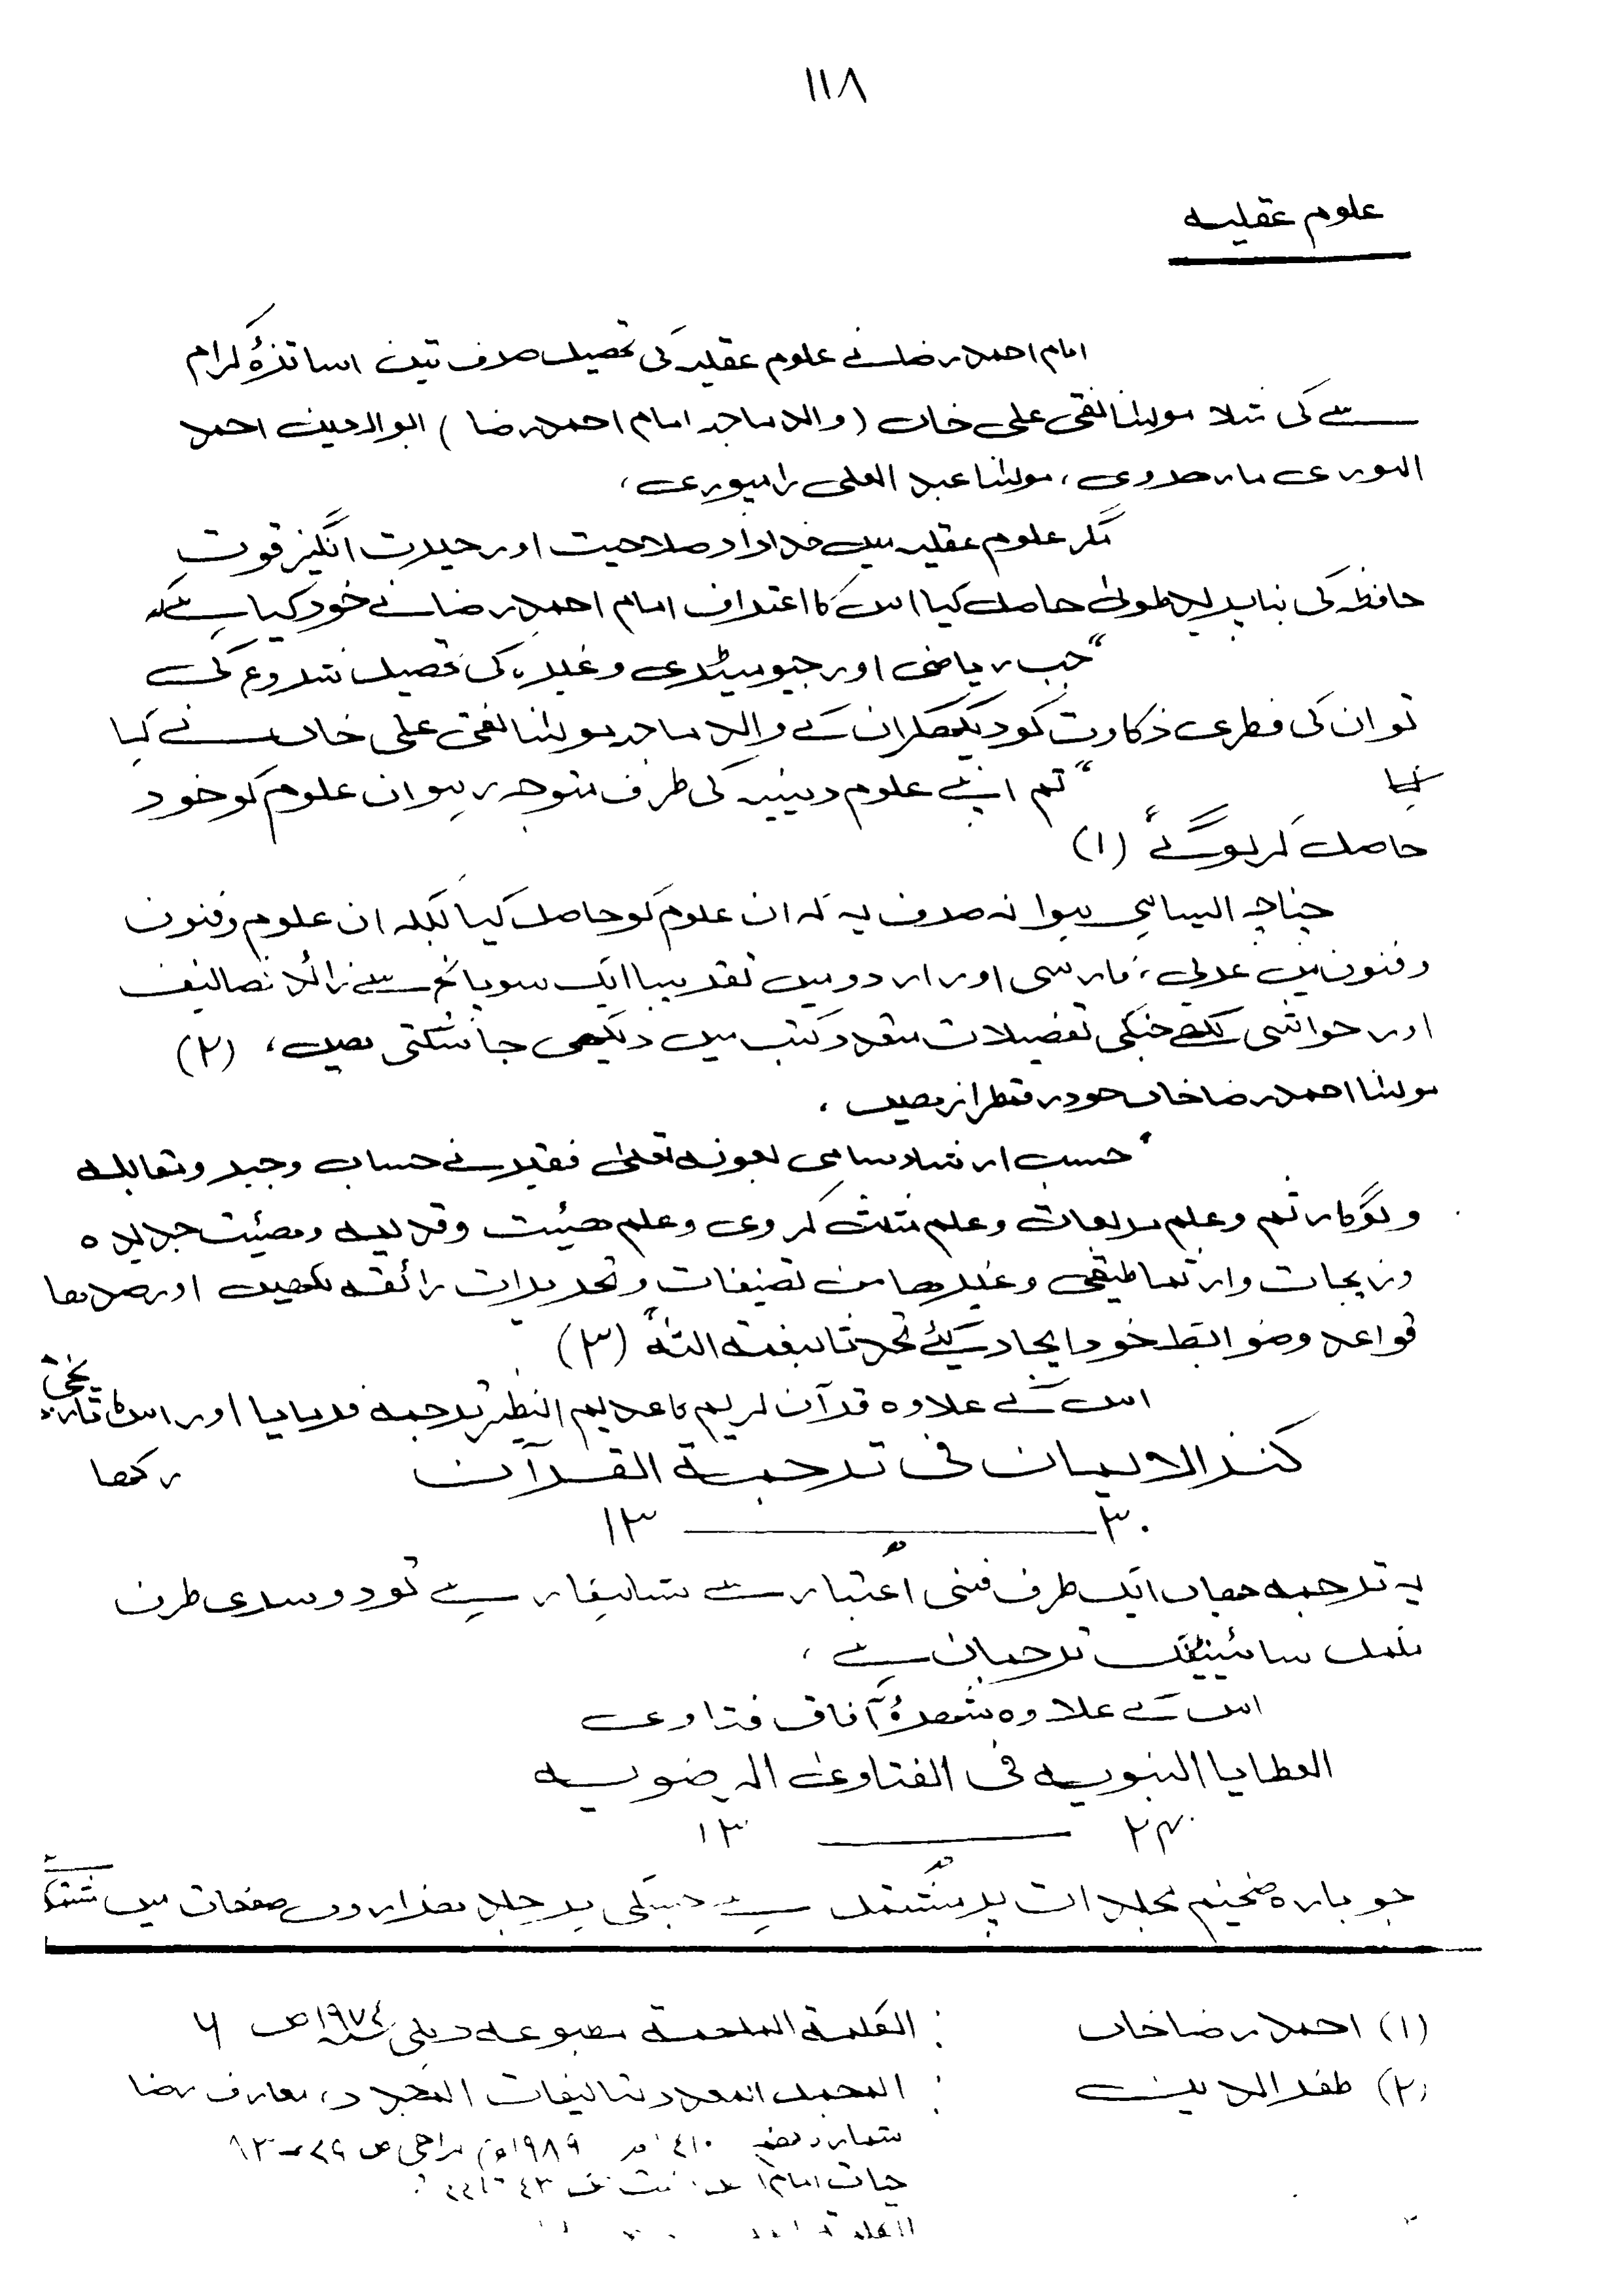 ١١٨
علوم عقلیہ
امام احمد رضا نے علوم عقلیہ کی تحصیل صرف تین اساتذۂ کرام
سے کی مثلا مولٰنا نقی علی خاں (والد ماجد امام احمد رضا) ابوالحسین احمد
النوری مارھروی، مولٰنا عبد العلی رامپوری،
مگر علوم عقلیہ میں خداداد صلاحیت اور حیرت انگیز قوت
حافظہ کی بنا پر ید طولیٰ حاصل کیا اس کا اعتراف امام احمد رضا نے خود کیا ہے کہ
“جب ریاضی اور جیومیٹری وغیرہ کی تحصیل شروع کی
تو ان کی فطری ذکاوت کو دیکھکر ان کے والد ماجد مولٰنا نقی علی خاں نے کہا
“تم اپنے علوم دینیہ کی طرف متوجہ رہو ان علوم کو خود
حاصل کر لو گے” (١)
چناچہ ایسا ہی ہوا نہ صرف یہ کہ ان علوم کو حاصل کیا بلکہ ان علوم و فنون
و فنون میں عربی، فارسی اور اردو میں تقریبا ایک سو پانچ سے زائد تصانیف
اور حواشی لکھے جنکی تفصیلات متعدد کتب میں دیکھی جا سکتی ھیں، (٢)
مولٰنا احمد رضا خاں خود رقمطراز ھیں،
“حسب ارشاد سامی بعونہ تعلٰی فقیر نے حساب و جبر و مقابلہ
و لوگارثم و علم مربعات و علم مثلث کروی و علم ھیئت و قدیمہ و ھیئت جدیدہ
و زیجات و ارثماطیقی و غیرھا میں تصنیفات و تحریرات رائقہ لکھیں اور صدھا
قواعد و ضوابط خود ایجاد کیئے تحدثا بنعمۃ اللہ” (٣)
اس کے علاوہ قرآن کریم کا عدیم النظیر ترجمہ فرمایا اور اس کا تاریخی
کنز الایمان فی ترجمۃ القرآن رکھا
٣٠ ــــــ ١٣
یہ ترجمہ جھاں ایک طرف فنی اعتبار سے شاھکار ہے تو دوسری طرف
مکمل سائینٹفک ترجمان ہے،
اس کے علاوہ شھرۂ آفاق فتاوی
العطایا النبویہ فی الفتاویٰ الرضویہ
٢٤ ــــــ ١٣
جو بارہ ضخیم مجلدات پر مشتمل ہے جسکی ہر جلد ھزاروں صفحات میں
(١) احمد رضا خاں : الکلمۃ الملھمۃ مطبوعہ دہلی ١٩٧٤ ص ٦
(٢) ظفر الدین : المجمل المعدد تالیفات المجدد، معارف رضا